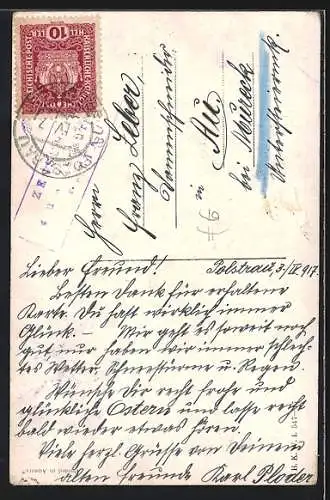 KAISERLICHE KÖNIGLICHE
ÖSTERREICHISCHE POST
HELLER 10 HELLER
Herrn
Franz Leber
in Au
bei Mureck
Untersteiermark
Polstrau, 3/IV 917
Lieber Freund!
Besten Dank für erhaltene
Karte. Du hast wirklich immer
Glück. — Mir geht es soweit noch
gut nur haben wir immer schlech-
tes Wetter. Schneestürme u. Regen.
Wünsche Dir recht frohe und
glückliche Ostern und lasse recht
bald wieder etwas hören.
Viele herzl. Grüsse von Deinem
alten Freunde Karl Ploder